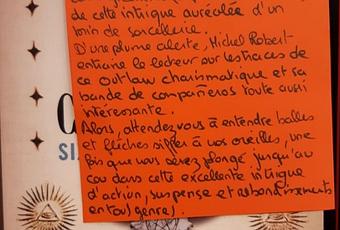 de cette intrigue auréolée d'un
brin de sorcellerie.
D'une plume alerte, Michel Robert
entraîne le lecteur sur les traces de
ce outlaw charismatique et sa
bande de compañeros toute aussi
intéressante.
Alors, attendez vous à entendre balles
et flèches siffler à vos oreilles, une
fois que vous serez plongé jusqu'au
cou dans cette excellente intrigue
d'action, suspense et rebondissements
en tous genres.
SI